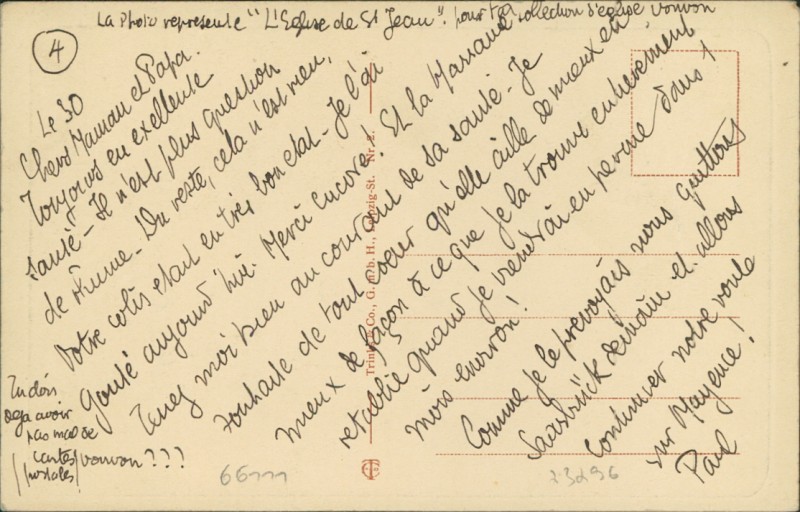 La Photo represente "L'Eglise de St Jean". pour ta collection d'eglise vonvon
4
Le 30
Chers Maman et Papa.
Toujours en excellente
santé - Il n'est plus question
de rhume - Du reste, cela n'est rien,
Votre colis etait en très bon etat - Je l'ai
gouté aujourd'hui. Merci Encore! Et la Marraine
Tenez moi bien au courant de sa santé - Je
souhaite de tout coeur qu'elle aille de mieux en
mieux de façon à ce que je la trouve entierement
retablie quand je viendrai en perme dans 1
mois environ!
Comme je le prevoyais nous quittons
Saarbrück demain et allons
continuer notre route
sur Mayence!
Paul
Tu dois
deja avoir
pas mal de
cartes
postales
vonvon???
Trinks & Co., G. m. b. H., Leipzig-St. Nr.